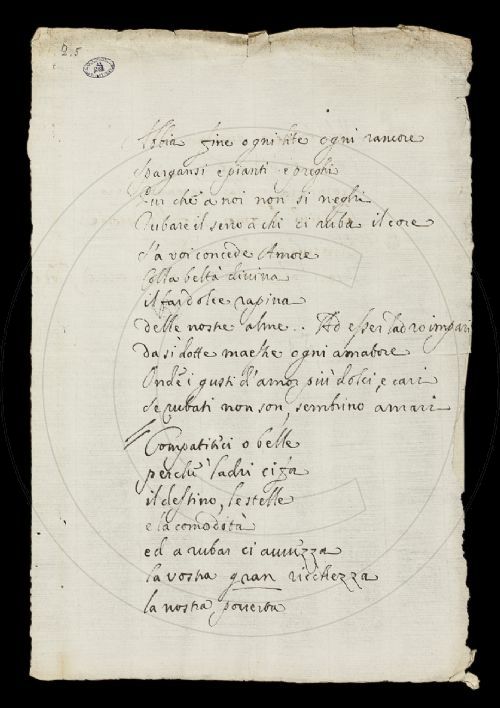 25
Abbia fine ogni lite ogni rancore
Spargansi e pianti e preghi
Pur che a noi non si neghi
Rubare il seno à chi ci ruba il core
S'a voi concede Amore
Colla beltà divina
il far dolce rapina
delle nostre alme .. Ad esser ladro impari
da sì dotte maestre ogni amatore
Onde i gusti d'amor più dolci, e cari
Se rubati non son, sembrino amari
Compatitici o belle
perché ladri ci fa
il destino, le stelle
e la comodità
ed a rubar ci avvezza
la vostra gran ricchezza
la nostra povertà